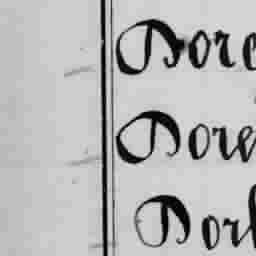 Dore
Dore
Dorl